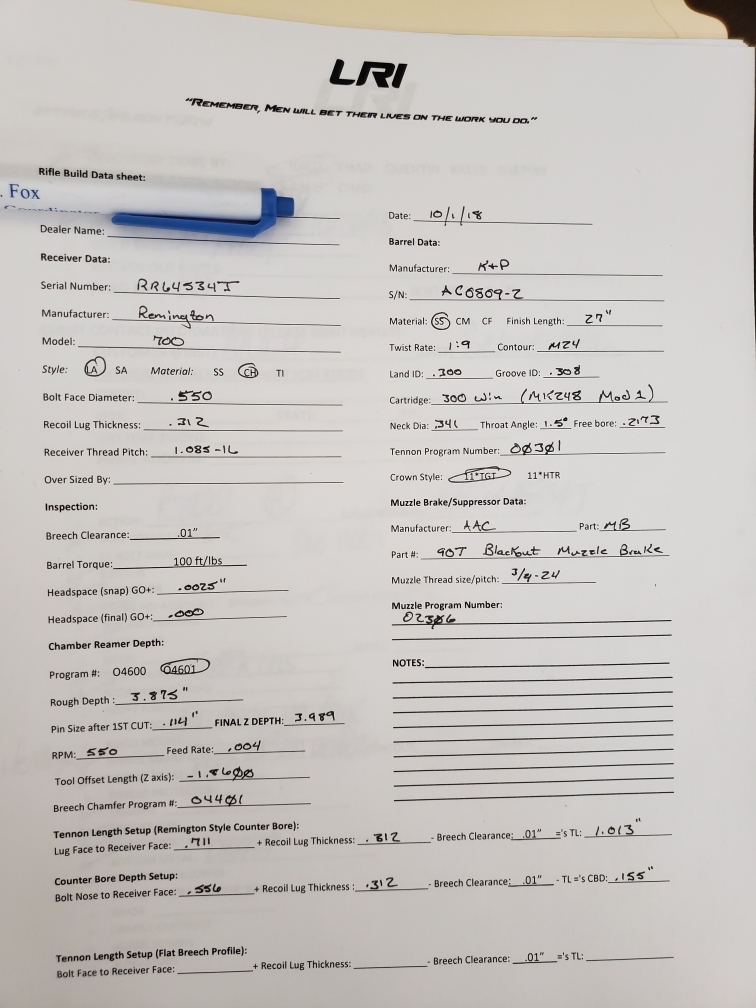 LRI
"REMEMBER, MEN WILL BET THEIR LIVES ON THE WORK YOU DO."
Rifle Build Data sheet:
. Fox
Dealer Name:
Receiver Data:
Serial Number: RR64534J
Manufacturer: Remington
Model: 700
Style: LA SA Material: SS CM TI
Bolt Face Diameter: .550
Recoil Lug Thickness: .312
Receiver Thread Pitch: 1.085-16
Over Sized By:
Inspection:
Breech Clearance: .01"
Barrel Torque: 100 ft/lbs
Headspace (snap) GO+: .0025"
Headspace (final) GO+: .000
Chamber Reamer Depth:
Program #: O4600 O4601
Rough Depth : 3.875"
Pin Size after 1ST CUT: .114" FINAL Z DEPTH: 3.989
RPM: 550 Feed Rate: .004
Tool Offset Length (Z axis): -1.8600
Breech Chamfer Program #: 04401
Date: 10/1/18
Barrel Data:
Manufacturer: K+P
S/N: AC0809-2
Material: SS CM CF Finish Length: 27"
Twist Rate: 1:9 Contour: M24
Land ID: .300 Groove ID: .308
Cartridge: 300 Win (MK248 Mod 1)
Neck Dia: .341 Throat Angle: 1.5° Free bore: .2173
Tennon Program Number: 00301
Crown Style: 11°TGT 11°HTR
Muzzle Brake/Suppressor Data:
Manufacturer: AAC Part: MB
Part #: 90T Blackout Muzzle Brake
Muzzle Thread size/pitch: 3/4-24
Muzzle Program Number:
02306
NOTES:
Tennon Length Setup (Remington Style Counter Bore):
Lug Face to Receiver Face: .711 + Recoil Lug Thickness: .312 - Breech Clearance: .01" ='s TL: 1.013"
Counter Bore Depth Setup:
Bolt Nose to Receiver Face: .556 + Recoil Lug Thickness : .312 - Breech Clearance: .01" - TL ='s CBD: .155"
Tennon Length Setup (Flat Breech Profile):
Bolt Face to Receiver Face: + Recoil Lug Thickness: - Breech Clearance: .01" ='s TL: